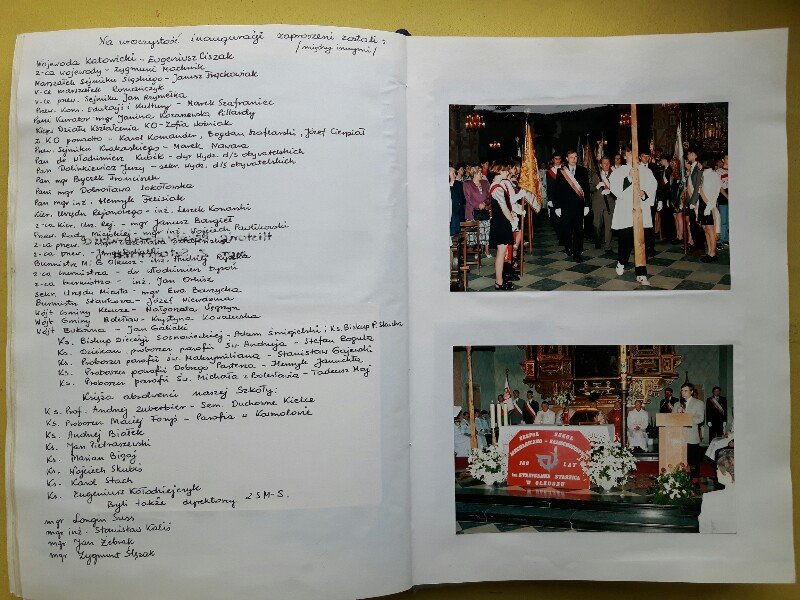 Na uroczystość inauguracji zaproszeni zostali:
/między innymi/
Wojewoda Katowicki - Eugeniusz Ciszak
z-ca wojewody - Zygmunt Machnik
Marszałek Sejmiku Śląskiego - Janusz Frąckowiak
v-ce marszałek Romańczyk
v-ce prew. Sejmiku Jan Krzymełka
Prew. Kom. Edukacji i Kultury - Marek Szafraniec
Pani Kurator mgr Janina Kazanowska Pillardy
Kier. Działu Kształcenia KO - Zofia Woźniak
z KO ponadto - Karol Komander, Bogdan Szaflarski, Józef Cierpiał
Prew. Sejmiku Krakowskiego - Marek Nawara
Pan dr Włodzimierz Kubik - dyr Wydz. d/s obywatelskich
Pan Dolinkiewicz Jerzy - sekr. Wydz. d/s obywatelskich
Pan mgr Byczek Franciszek
Pani mgr Dobrosława Sokołowska
Pan mgr inż. Henryk Felisiak
Kier. Urzędu Rejonowego - inż. Leszek Konarski
z-ca Kier. Urz. Rej. - mgr Janusz Bargieł
Prew. Rady Miejskiej - mgr inż. Wojciech Pawlikowski
z-ca prew.
z-ca prew. -
Burmistrz M. G Olkusz - inż. Andrzej Ryszka
z-ca burmistrza - dr Włodzimierz Łysoń
z-ca burmistrza - inż. Jan Orkisz
Sekr. Urzędu Miasta - mgr Ewa Barzycka
Burmistrz Sławkowa - Józef Niewdana
Wójt Gminy Klucze - Małgorzata Węgrzyn
Wójt Gminy Bolesław - Krystyna Kowalewska
Wójt Bukowna - Jan Galicki
Ks. Biskup Diecezji Sosnowieckiej - Adam Śmigielski i Ks. Biskup P. Skucha
Ks. Dziekan, proboszcz parafii Św. Andrzeja - Stefan Rogula
Ks. Proboszcz parafii Św. Maksymiliana - Stanisław Gajewski
Ks. Proboszcz parafii Dobrego Pasterza - Henryk Januchta
Ks. Proboszcz parafii Św. Michała z Bolesławia - Tadeusz Maj
Księża absolwenci naszej Szkoły:
Ks. Prof. Andrzej Zuberbier - Sem. Duchowne Kielce
Ks. Proboszcz Maciej Fonyś - Parafia w Kamolanie
Ks. Andrzej Białek
Ks. Jan Pietraszewski
Ks. Marian Bigaj
Ks. Wojciech Skubis
Ks. Karol Stach
Ks. Eugeniusz Kołodziejczyk
Byli także dyrektorzy ZSM-S.
mgr Longin Suss
mgr inż. Stanisław Kaliś
mgr Jan Żebrak
mgr Zygmunt Ślązak
ZESPÓŁ SZKÓŁ
MECHANICZNO-
100 LAT
im. STANISŁAWA STASZICA
W OLKUSZU